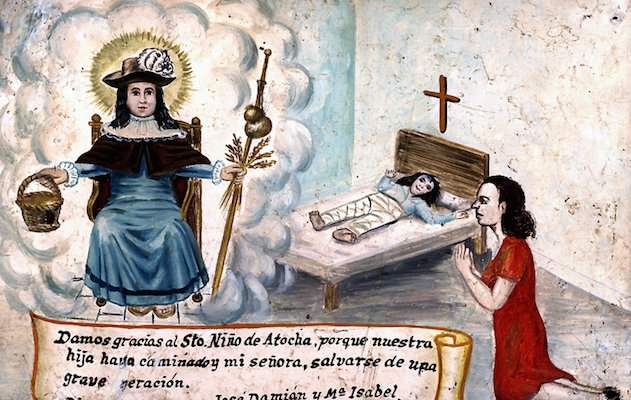 Damos gracias al Sto. Niño de Atocha, porque nuestra
hija haya caminado y mi señora, salvarse de una
grave peración.
José Damián y Mª Isabel